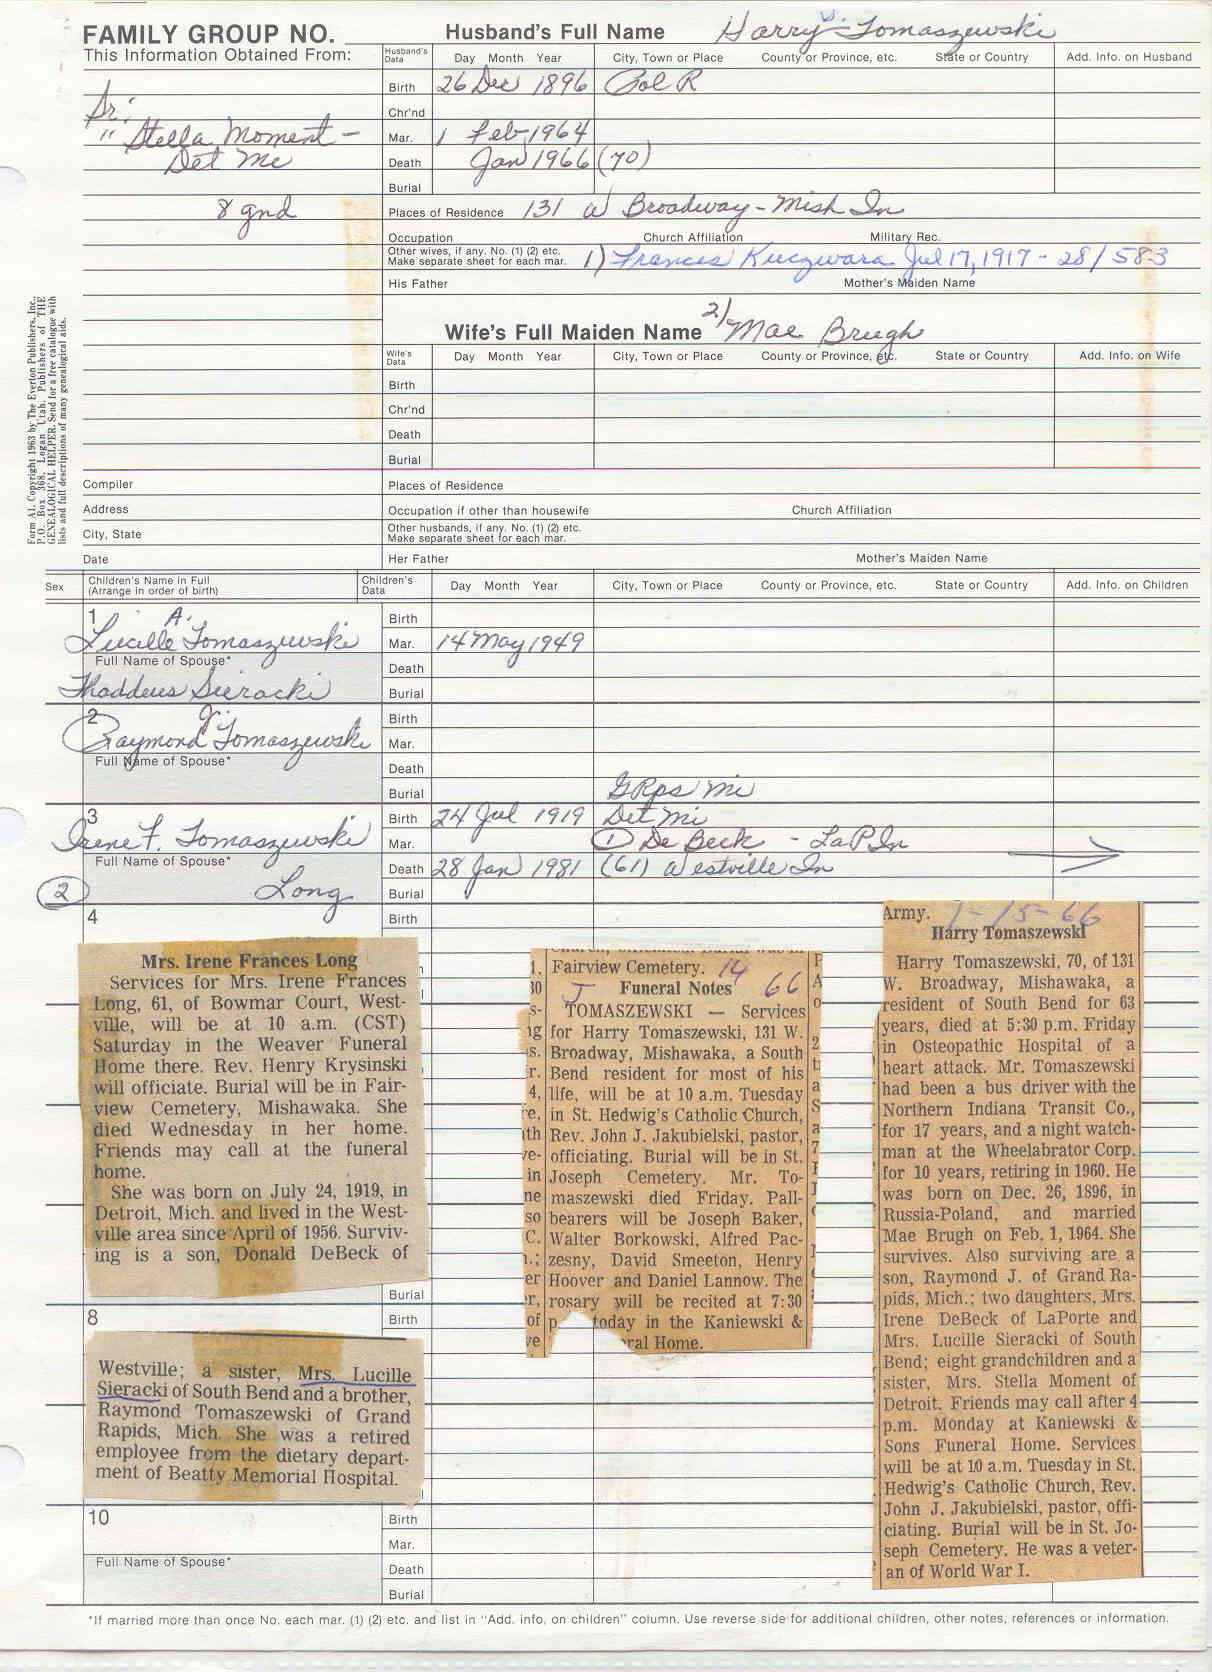 FAMILY GROUP NO.
Husband's Full Name Harry V. Tomaszewski
This Information Obtained From:
Husband's Data Day Month Year City, Town or Place County or Province, etc. State or Country Add. Info. on Husband
Birth 26 Dec 1896 Pol R
Sr:
Chr'nd
" Stella Moment -
Mar. 1 Feb 1964
Det Mc
Death Jan 1966 (70)
Burial
8 gnd
Places of Residence 131 W Broadway - Mish In
Occupation Church Affiliation Military Rec.
Other wives, if any. No. (1) (2) etc.
Make separate sheet for each mar. 1) Frances Kuczwara Jul 17, 1917 - 28/583
His Father Mother's Maiden Name
Wife's Full Maiden Name 2) Mae Brugh
Wife's Data Day Month Year City, Town or Place County or Province, etc. State or Country Add. Info. on Wife
Birth
Chr'nd
Death
Burial
Form A1. Copyright 1963 by The Everton Publishers, Inc.
P.O. Box 368, Logan Utah. Publishers of THE
GENEALOGICAL HELPER. Send for a free catalogue with
lists and full descriptions of many genealogical aids.
Compiler Places of Residence
Address Occupation if other than housewife Church Affiliation
City, State Other husbands, if any. No. (1) (2) etc.
Make separate sheet for each mar.
Date Her Father Mother's Maiden Name
Sex Children's Name in Full
(Arrange in order of birth) Children's Data Day Month Year City, Town or Place County or Province, etc. State or Country Add. Info. on Children
1 A. Birth
Lucille Tomaszewski Mar. 14 May 1949
Full Name of Spouse* Death
Thaddeus Sieracki Burial
2 J. Birth
Raymond Tomaszewski Mar.
Full Name of Spouse* Death
Burial GRps Mi
3 Birth 24 Jul 1919 Det Mi
Irene F. Tomaszewski Mar. (1) De Beck - LaP In
Full Name of Spouse* Death 28 Jan 1981 (61) Westville In
(2) Long Burial
4 Birth
Mrs. Irene Frances Long
Services for Mrs. Irene Frances
Long, 61, of Bowmar Court, West-
ville, will be at 10 a.m. (CST)
Saturday in the Weaver Funeral
Home there. Rev. Henry Krysinski
will officiate. Burial will be in Fair-
view Cemetery, Mishawaka. She
died Wednesday in her home.
Friends may call at the funeral
home.
She was born on July 24, 1919, in
Detroit, Mich. and lived in the West-
ville area since April of 1956. Surviv-
ing is a son, Donald DeBeck of
Burial
8 Birth
Westville; a sister, Mrs. Lucille
Sieracki of South Bend and a brother,
Raymond Tomaszewski of Grand
Rapids, Mich. She was a retired
employee from the dietary depart-
ment of Beatty Memorial Hospital.
Fairview Cemetery. 14
J Funeral Notes 66
TOMASZEWSKI — Services
for Harry Tomaszewski, 131 W.
Broadway, Mishawaka, a South
Bend resident for most of his
life, will be at 10 a.m. Tuesday
in St. Hedwig's Catholic Church,
Rev. John J. Jakubielski, pastor,
officiating. Burial will be in St.
Joseph Cemetery. Mr. To-
maszewski died Friday. Pall-
bearers will be Joseph Baker,
Walter Borkowski, Alfred Pac-
zesny, David Smeeton, Henry
Hoover and Daniel Lannow. The
rosary will be recited at 7:30
p today in the Kaniewski &
ral Home.
Army. 1-15-66
Harry Tomaszewski
Harry Tomaszewski, 70, of 131
W. Broadway, Mishawaka, a
resident of South Bend for 63
years, died at 5:30 p.m. Friday
in Osteopathic Hospital of a
heart attack. Mr. Tomaszewski
had been a bus driver with the
Northern Indiana Transit Co.,
for 17 years, and a night watch-
man at the Wheelabrator Corp.
for 10 years, retiring in 1960. He
was born on Dec. 26, 1896, in
Russia-Poland, and married
Mae Brugh on Feb. 1, 1964. She
survives. Also surviving are a
son, Raymond J. of Grand Ra-
pids, Mich.; two daughters, Mrs.
Irene DeBeck of LaPorte and
Mrs. Lucille Sieracki of South
Bend; eight grandchildren and a
sister, Mrs. Stella Moment of
Detroit. Friends may call after 4
p.m. Monday at Kaniewski &
Sons Funeral Home. Services
will be at 10 a.m. Tuesday in St.
Hedwig's Catholic Church, Rev.
John J. Jakubielski, pastor, offi-
ciating. Burial will be in St. Jo-
seph Cemetery. He was a veter-
an of World War I.
10 Birth
Mar.
Full Name of Spouse* Death
Burial
*If married more than once No. each mar. (1) (2) etc. and list in "Add. info, on children" column. Use reverse side for additional children, other notes, references or information.